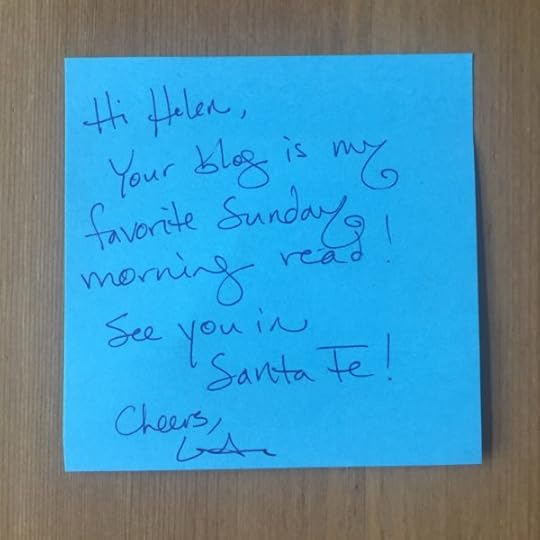 Hi Helen,
Your blog is my
favorite Sunday
morning read!
See you in
Santa Fe!
Cheers,